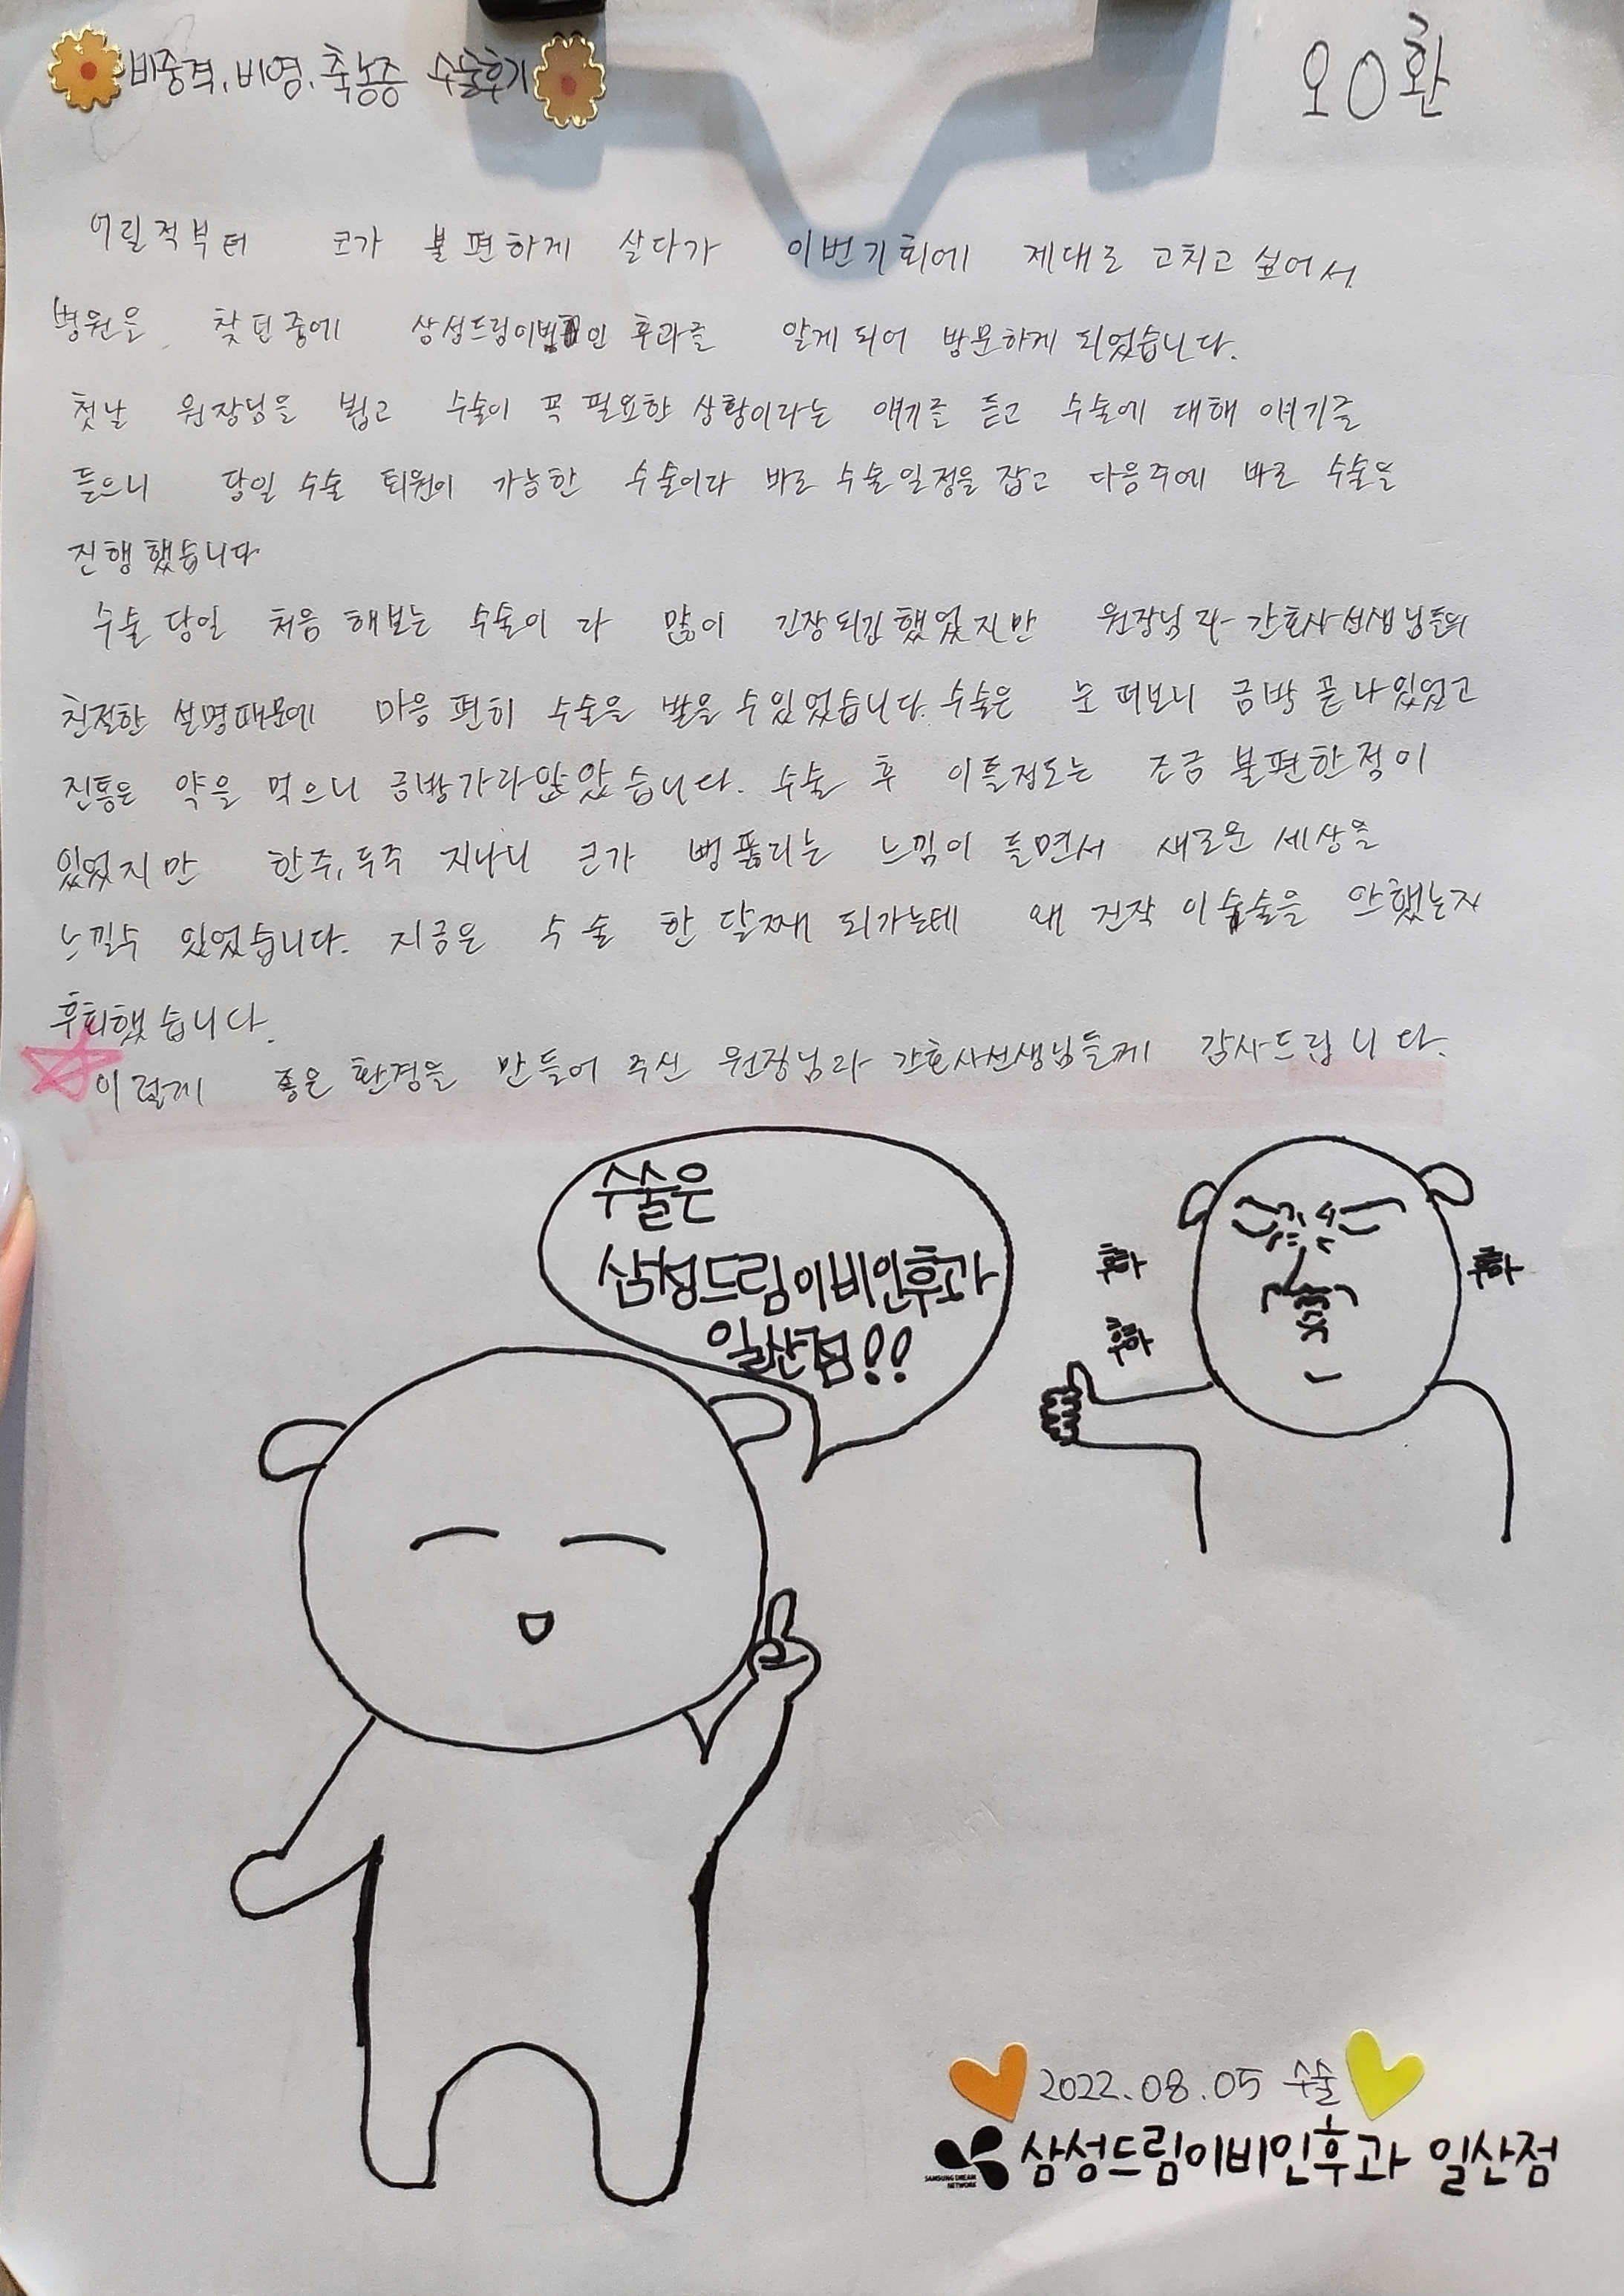 비중격.비염.축농증 수술후기
오O환
어릴적부터 코가 불편하게 살다가 이번기회에 제대로 고치고 싶어서
병원을 찾던중에 삼성드림이비인후과를 알게 되어 방문하게 되었습니다.
첫날 원장님을 뵙고 수술이 꼭 필요한 상황이라는 얘기를 듣고 수술에 대해 얘기를
들으니 당일 수술 퇴원이 가능한 수술이라 바로 수술일정을 잡고 다음주에 바로 수술을
진행했습니다
수술당일 처음 해보는 수술이라 많이 긴장되긴했었지만 원장님과 간호사선생님들의
친절한 설명때문에 마음 편히 수술을 받을 수있었습니다. 수술은 눈 떠보니 금방 끝나있었고
진통은 약을 먹으니 금방가라앉았습니다. 수술 후 이틀정도는 조금 불편한점이
있었지만 한주,두주 지나니 코가 뻥뚫리는 느낌이 들면서 새로운 세상을
느낄수 있었습니다. 지금은 수술 한달째 되가는데 왜 진작 이 수술을 안했는지
후회했습니다.
이렇게 좋은 환경을 만들어 주신 원장님과 간호사선생님들께 감사드립니다.
수술은
삼성드림이비인후과
일산점!!
후하
후하
후하
2022.08.05 수술
삼성드림이비인후과 일산점
SAMSUNG DREAM
NETWORK